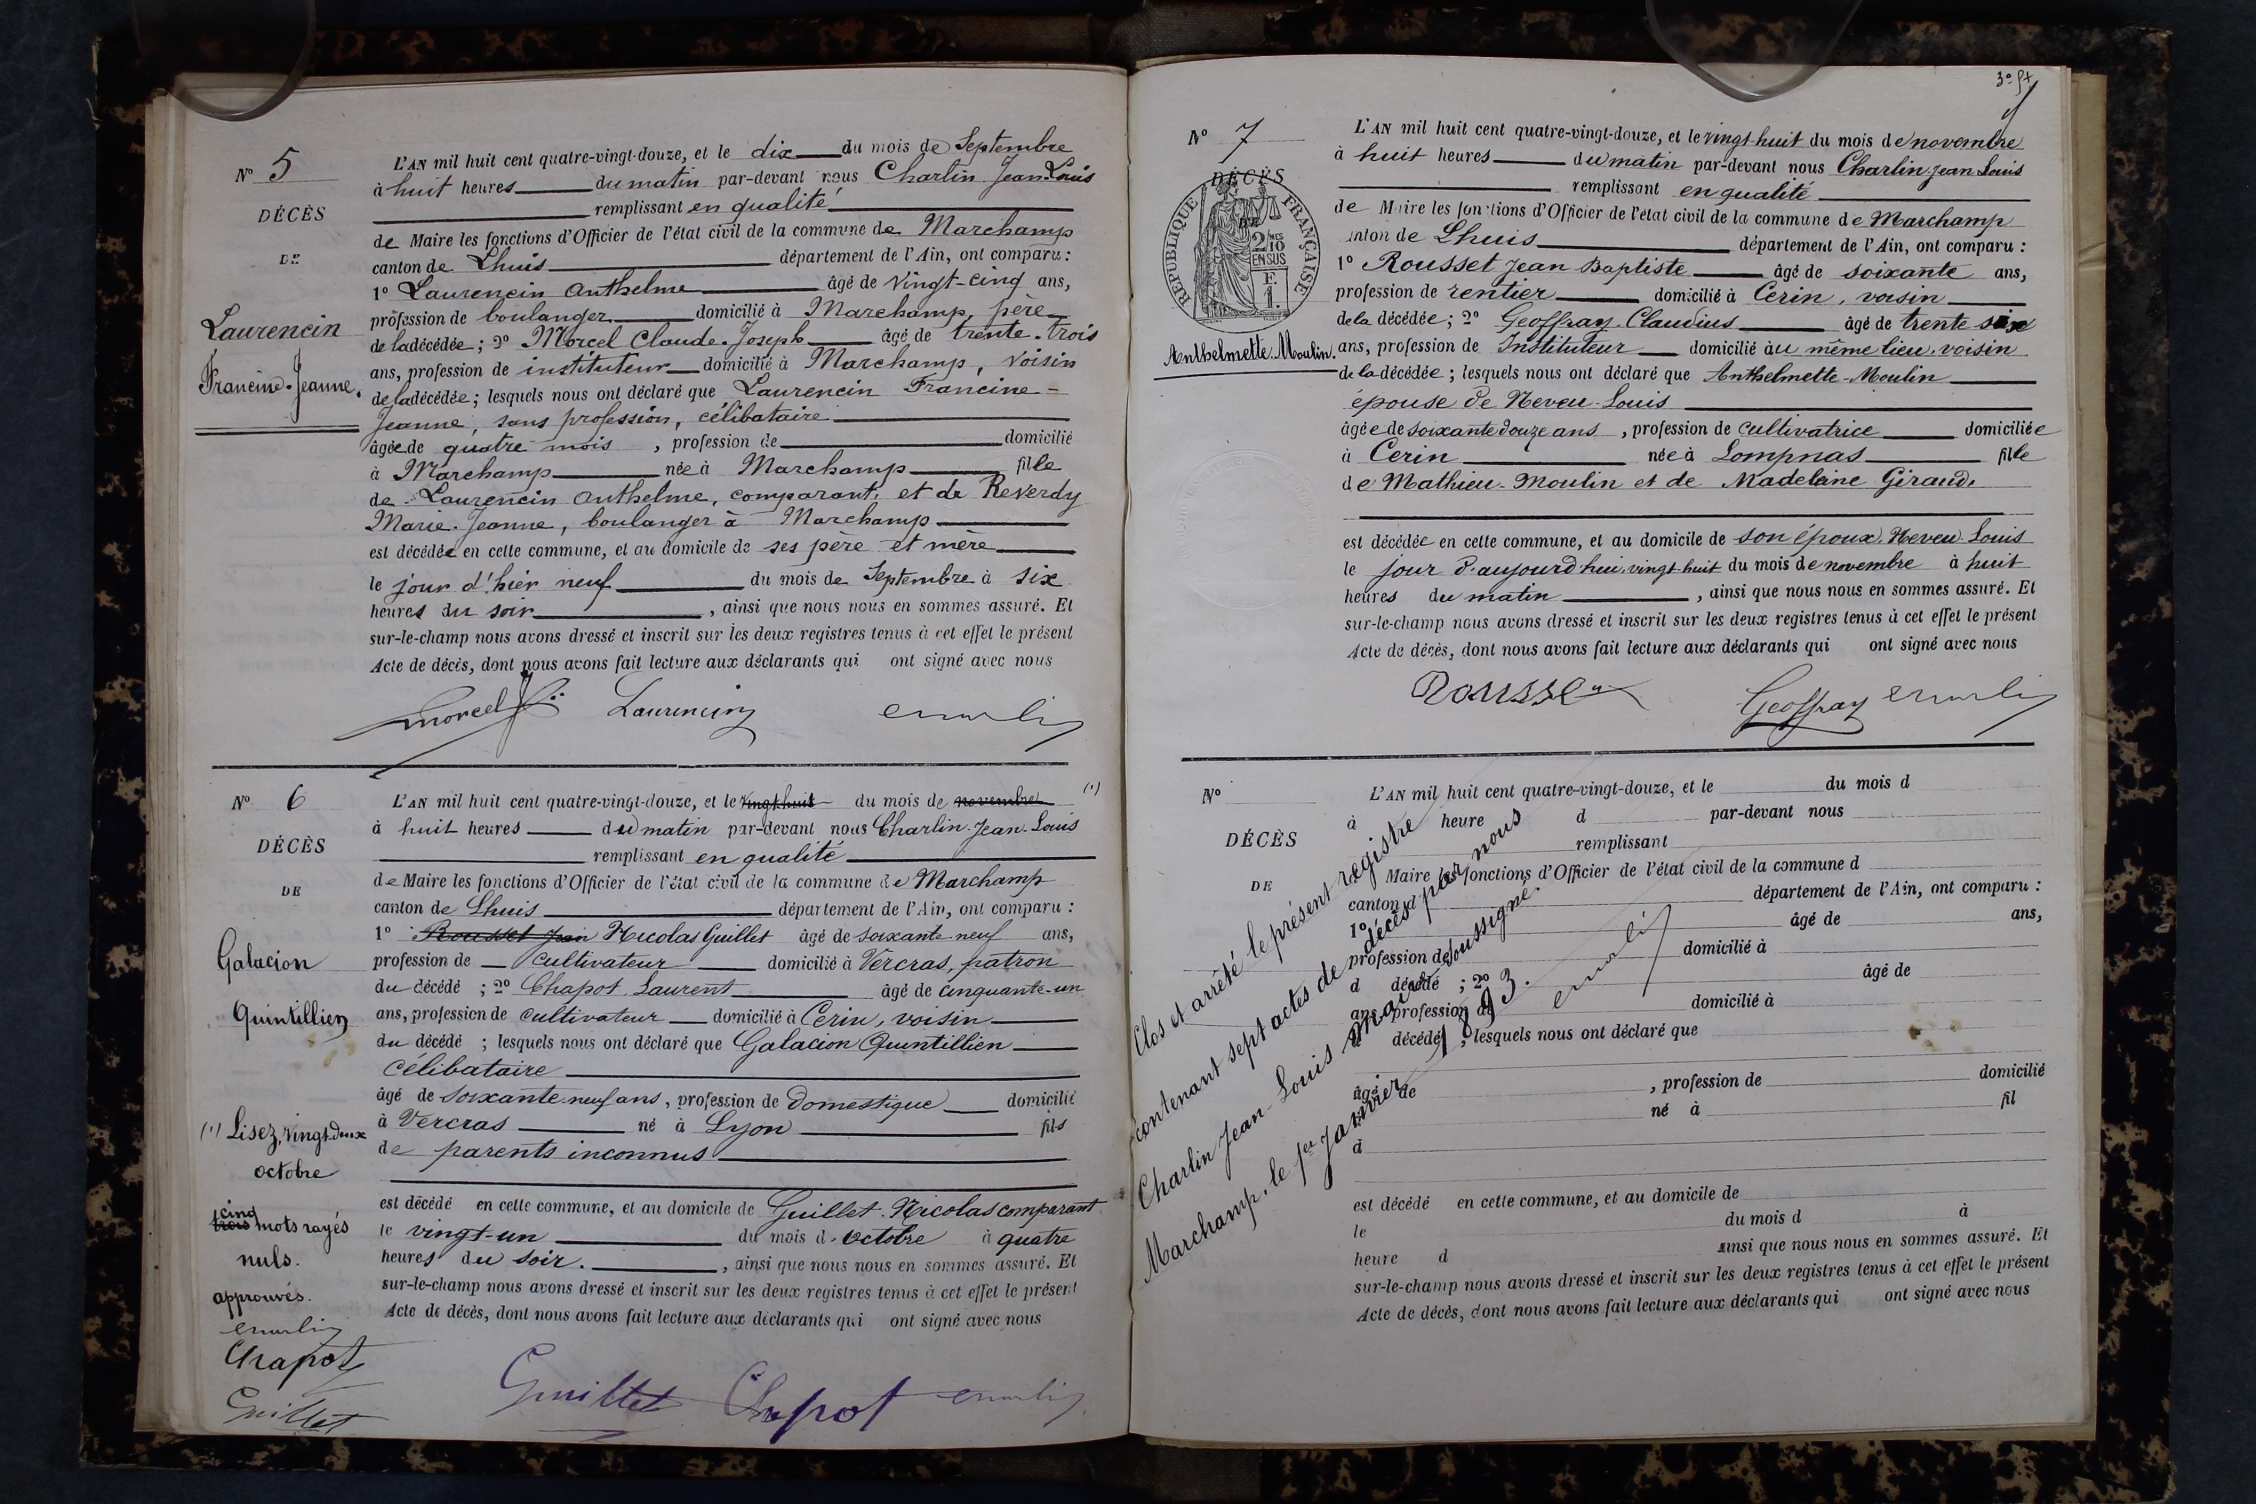 N° 5
DÉCÈS
DE
Laurencin
Francine-Jeanne.
L'AN mil huit cent quatre-vingt-douze, et le dix du mois de Septembre
à huit heures du matin par-devant nous Charlin Jean-Louis
remplissant en qualité
de Maire les fonctions d'Officier de l'état civil de la commune de Marchamp
canton de Lhuis département de l'Ain, ont comparu :
1° Laurencin Anthelme âgé de vingt-cinq ans,
profession de boulanger domicilié à Marchamp, père
de la décédée ; 2° Morcel Claude-Joseph âgé de trente-trois
ans, profession de instituteur domicilié à Marchamp, voisin
de la décédée ; lesquels nous ont déclaré que Laurencin Francine-
Jeanne, sans profession, célibataire
âgée de quatre mois , profession de domicilié
à Marchamp née à Marchamp fille
de Laurencin Anthelme, comparant, et de Reverdy
Marie-Jeanne, boulanger à Marchamp
est décédée en cette commune, et au domicile de ses père et mère
le jour d'hier neuf du mois de Septembre à six
heures du soir , ainsi que nous nous en sommes assuré. Et
sur-le-champ nous avons dressé et inscrit sur les deux registres tenus à cet effet le présent
Acte de décès, dont nous avons fait lecture aux déclarants qui ont signé avec nous
Morcel Laurencin Charlin
N° 6
DÉCÈS
DE
Galacion
Quintillien
(1) Lisez, vingt-deux
octobre
cinq
trois mots rayés
nuls.
approuvés.
Charlin
Chapot
Guillet
L'AN mil huit cent quatre-vingt-douze, et le vingt-huit du mois de novembre (1)
à huit heures du matin par-devant nous Charlin-Jean-Louis
remplissant en qualité
de Maire les fonctions d'Officier de l'état civil de la commune de Marchamp
canton de Lhuis département de l'Ain, ont comparu :
1° Rousset Jean Nicolas Guillet âgé de soixante-neuf ans,
profession de cultivateur domicilié à Vercras, patron
du décédé ; 2° Chapot Laurent âgé de cinquante-un
ans, profession de cultivateur domicilié à Cerin, voisin
du décédé ; lesquels nous ont déclaré que Galacion Quintillien
célibataire
âgé de soixante-neuf ans, profession de domestique domicilié
à Vercras né à Lyon fils
de parents inconnus
est décédé en cette commune, et au domicile de Guillet-Nicolas comparant
le vingt-un du mois d'octobre à quatre
heures du soir. , ainsi que nous nous en sommes assuré. Et
sur-le-champ nous avons dressé et inscrit sur les deux registres tenus à cet effet le présent
Acte de décès, dont nous avons fait lecture aux déclarants qui ont signé avec nous
Guillet Chapot Charlin
N° 7
DÉCÈS
RÉPUBLIQUE FRANÇAISE
2/10
EN SUS
F.
1.
Anthelmette-Moulin.
L'AN mil huit cent quatre-vingt-douze, et le vingt-huit du mois de novembre
à huit heures du matin par-devant nous Charlin-Jean Louis
remplissant en qualité
de Maire les fonctions d'Officier de l'état civil de la commune de Marchamp
canton de Lhuis département de l'Ain, ont comparu :
1° Rousset Jean Baptiste âgé de soixante ans,
profession de rentier domicilié à Cerin, voisin
de la décédée ; 2° Geoffray-Claudius âgé de trente-six
ans, profession de Instituteur domicilié au même lieu, voisin
de la décédée ; lesquels nous ont déclaré que Anthelmette-Moulin
épouse de Neveu-Louis
âgée de soixante douze ans , profession de cultivatrice domiciliée
à Cerin née à Lompnas fille
de Mathieu-Moulin et de Madeleine Giraud.
est décédée en cette commune, et au domicile de son époux, Neveu-Louis
le jour d'aujourd'hui, vingt-huit du mois de novembre à huit
heures du matin , ainsi que nous nous en sommes assuré. Et
sur-le-champ nous avons dressé et inscrit sur les deux registres tenus à cet effet le présent
Acte de décès, dont nous avons fait lecture aux déclarants qui ont signé avec nous
Rousset Geoffray Charlin
N°
DÉCÈS
DE
L'AN mil huit cent quatre-vingt-douze, et le du mois d
à heure d par-devant nous
remplissant
Maire les fonctions d'Officier de l'état civil de la commune d
canton d département de l'Ain, ont comparu :
1° âgé de ans,
profession de domicilié à
d décédé ; 2° âgé de
ans, profession de domicilié à
d décédé ; lesquels nous ont déclaré que
âgé de , profession de domicilié
à né à fil
d
est décédé en cette commune, et au domicile de
le du mois d à
heure d ainsi que nous nous en sommes assuré. Et
sur-le-champ nous avons dressé et inscrit sur les deux registres tenus à cet effet le présent
Acte de décès, dont nous avons fait lecture aux déclarants qui ont signé avec nous
Clos et arrêté le présent registre
contenant sept actes de décès par nous
Charlin Jean-Louis Maire soussigné.
Marchamp, le 1er Janvier 1893.
Charlin